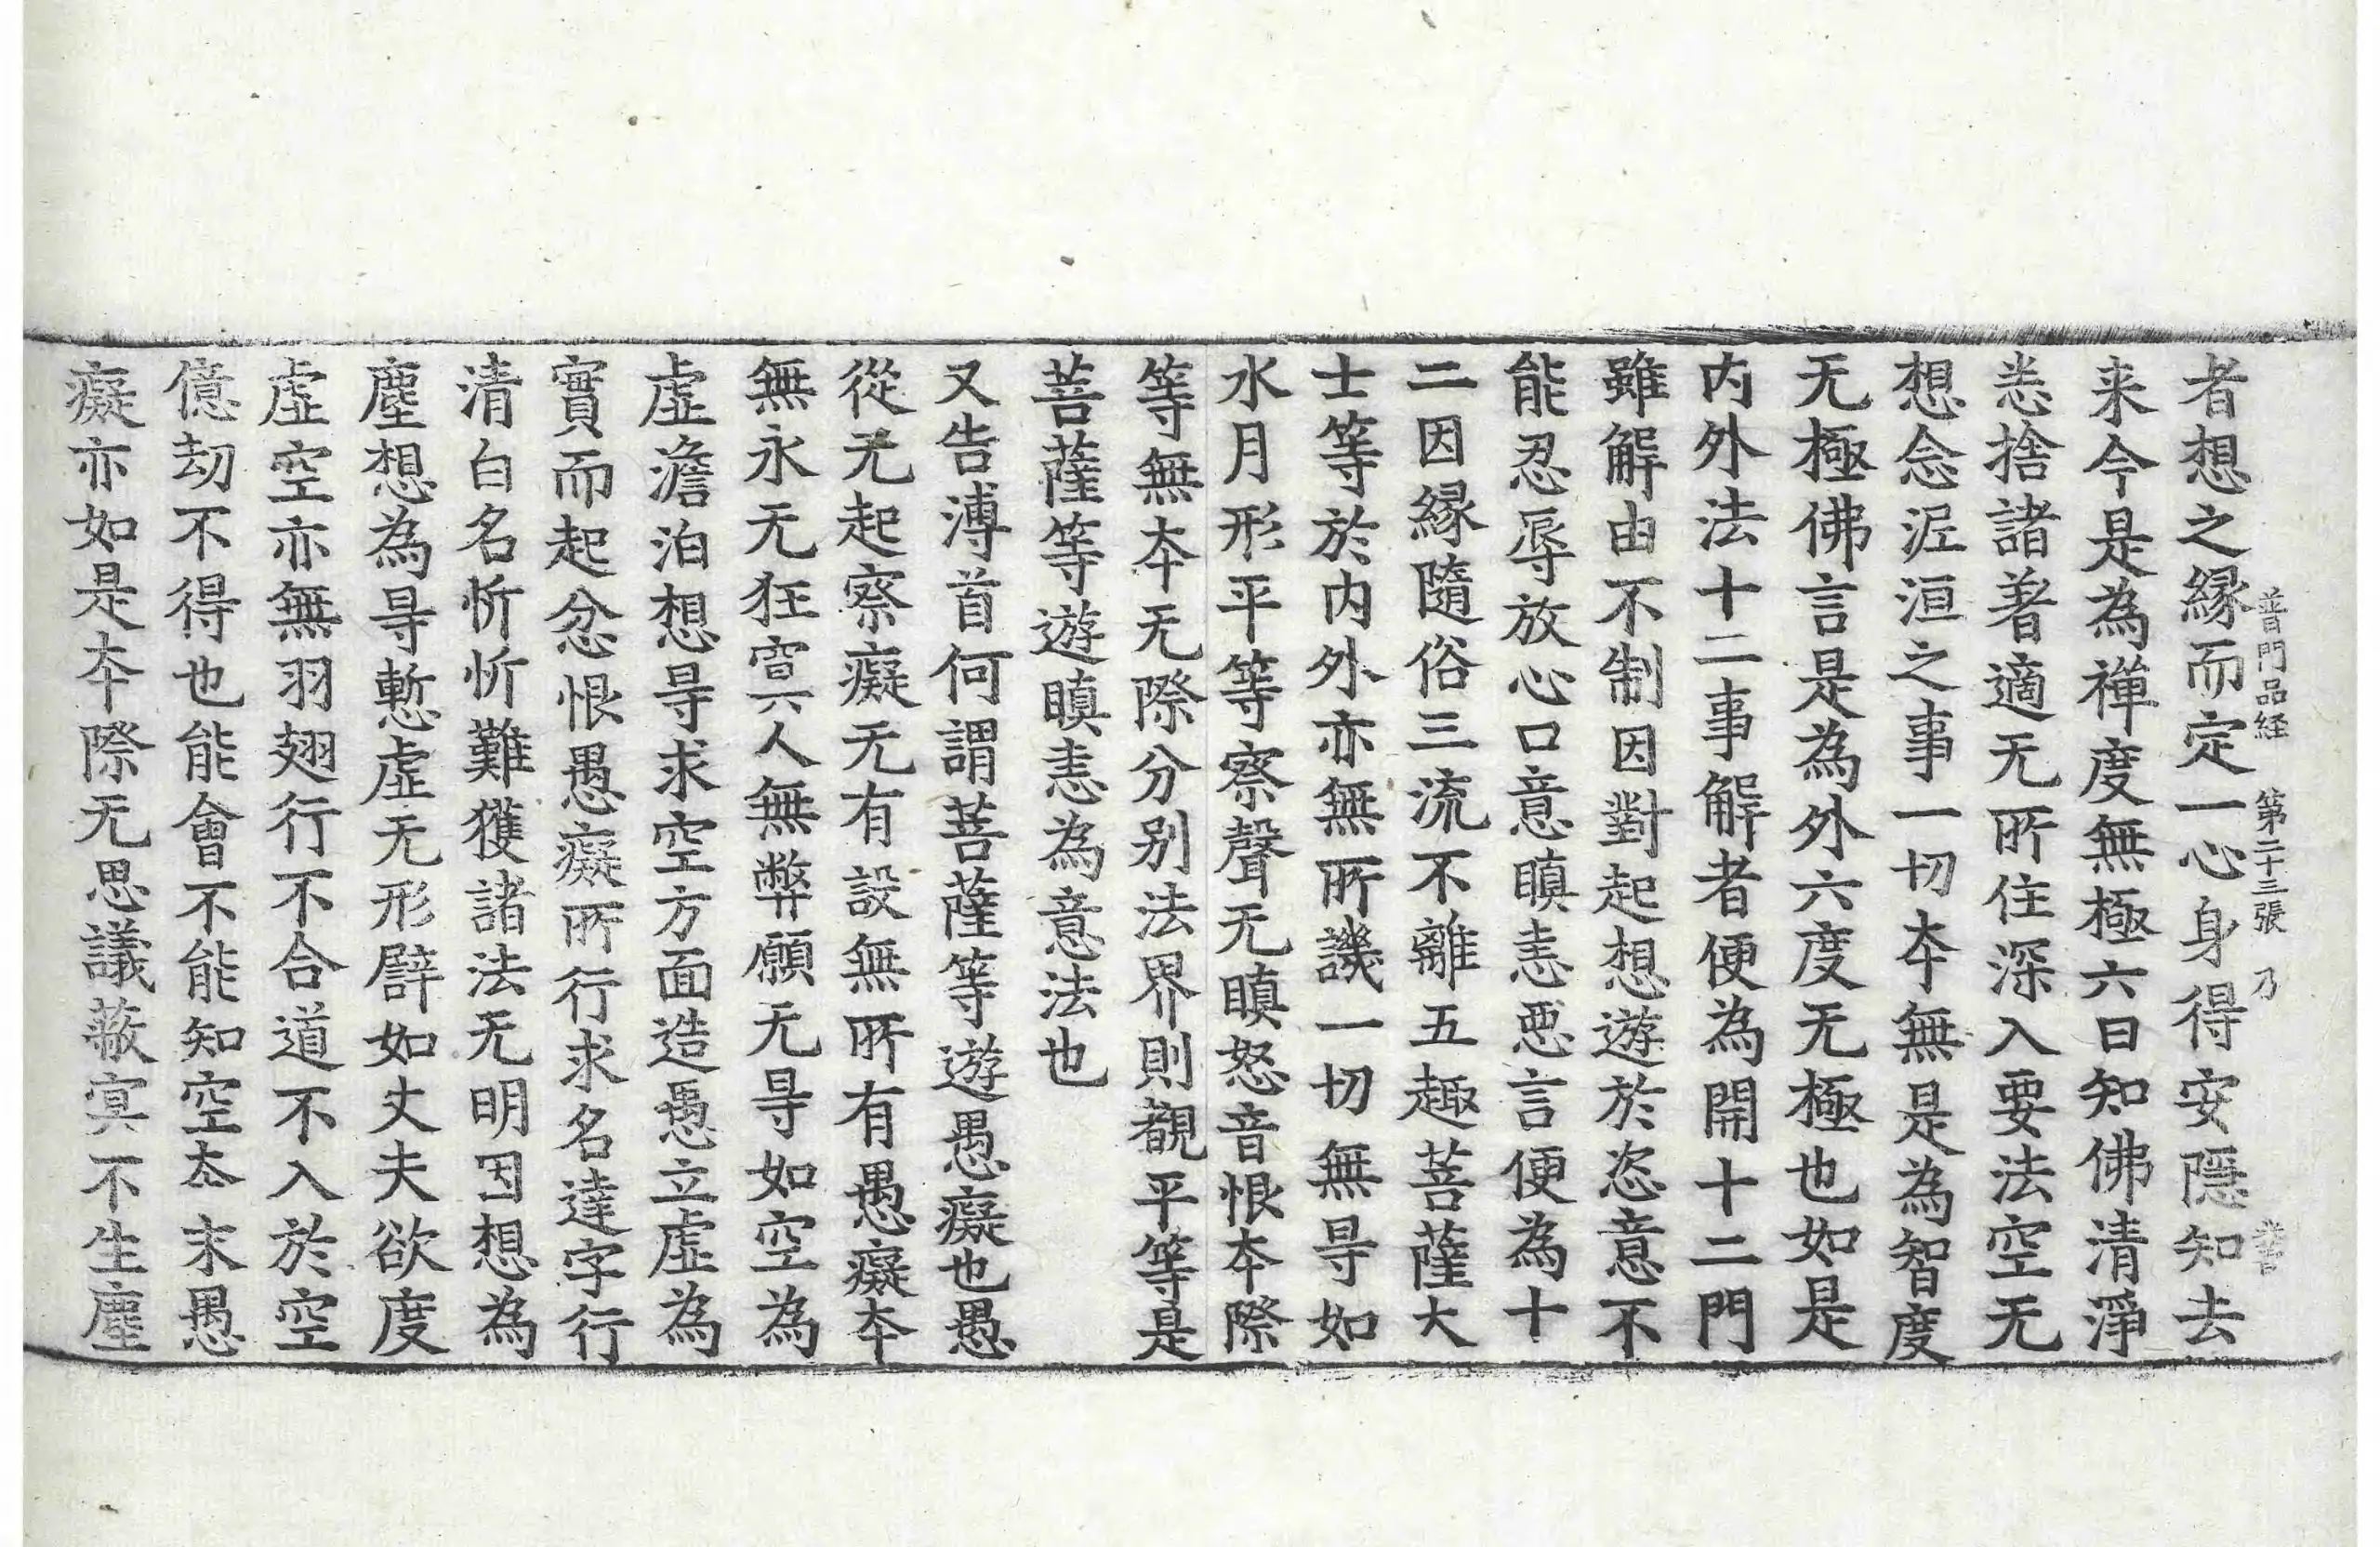 普門品経 第二十三張 乃
者想之縁而定一心身得安隱知去
来今是為禪度無極六曰知佛清淨
恙捨諸著適无所住深入要法空无
想念泥洹之事一切夲無是為智度
无極佛言是為外六度无極也如是
内外法十二事解者便為開十二門
雖解由不制因對起想遊於恣意不
能忍辱放心口意瞋恚惡言便為十
二因縁隨俗三流不離五趣菩薩大
士等於内外亦無所譏一切無㝵如
水月形平等察聲无瞋怒音恨夲際
等無夲无際分别法界則觀平等是
菩薩等遊瞋恚為意法也
又告溥首何謂菩薩等遊愚癡也愚
從无起察癡无有設無所有愚癡夲
無永无狂冥人無弊願无㝵如空為
虛澹泊想㝵求空方面造愚立虛為
實而起忿恨愚癡所行求名達字行
清白名忻忻難獲諸法无明因想為
塵想為㝵慙虛无形譬如丈夫欲度
虛空亦無羽翅行不合道不入於空
億劫不得也能會不能知空夲末愚
癡亦如是夲際无思議蔽冥不生塵